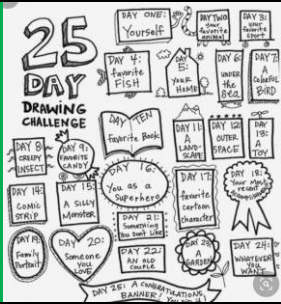 25
DAY
DRAWING
CHALLENGE
DAY ONE:
Yourself
DAY TWO
your
favorite
animal
DAY 3:
your
favorite
sport
DAY 4:
favorite
FISH
DAY
5:
YOUR
HOME
DAY 6:
UNDER
the
Sea
DAY 7:
A
COLORFUL
BIRD
DAY 8:
CREEPY
INSECT
DAY 9:
FAVORITE
CANDY
DAY TEN
favorite Book
DAY 11:
A
LAND-
SCAPE
DAY 12:
OUTER
SPACE
DAY
13:
A
TOY
DAY 14:
COMIC
STRIP
DAY 15:
A SILLY
MONSTER
DAY 16:
You as a
superhero
DAY 17:
favorite
cartoon
character
DAY 18:
Your most
recent
DAY 19:
Family
Portrait
DAY 20:
Someone
you
LOVE
DAY 21:
Something
You Don't Like
DAY 22:
AN OLD
COUPLE
DAY 23:
A
GARDEN
DAY 24:
WHATEVER
YOU
WANT
DAY 25: A CONGRATULATIONS
BANNER!